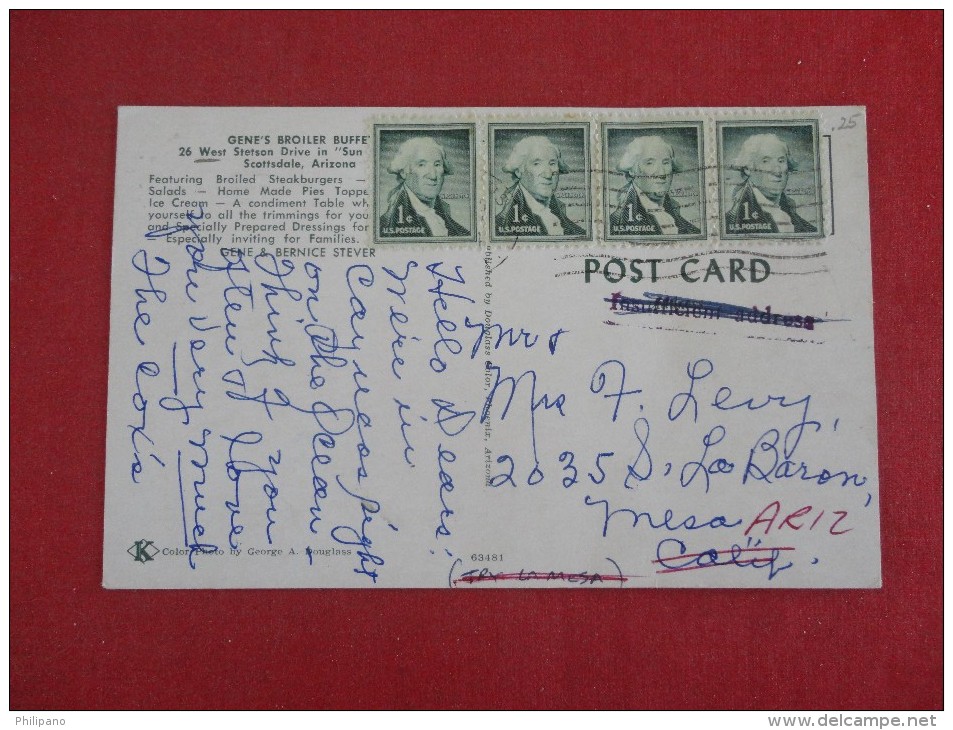 GENE'S BROILER BUFFE
26 West Stetson Drive in "Sun
Scottsdale, Arizona
Featuring Broiled Steakburgers —
Salads — Home Made Pies Toppe
Ice Cream — A condiment Table wh
yourself to all the trimmings for you
and Specially Prepared Dressings for
Especially inviting for Families.
GENE & BERNICE STEVER
Hello Dears!
We're in
right
on the Ocean
Think of you
often & love
you very much
The Cox's
Color Photo by George A. Douglass
K
63481
Published by Douglass Color, Phoenix, Arizona
1¢
U.S. POSTAGE
1¢
U.S. POSTAGE
1¢
U.S. POSTAGE
1¢
U.S. POSTAGE
.25
POST CARD
Insufficient address
Mr &
Mrs F. Levy,
2035 S. La Baron,
Mesa ARIZ
Calif.
(TRY LA MESA)
Philipano
www.delcampe.net